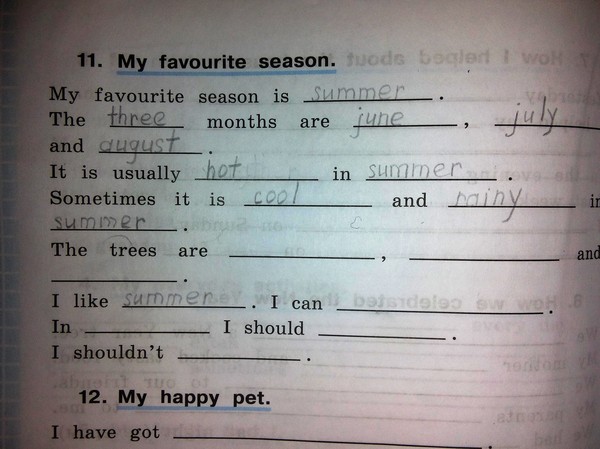 11. My favourite season.
My favourite season is summer.
The three months are june, july
and august.
It is usually hot in summer.
Sometimes it is cool and rainy in
summer.
The trees are ____, ____ and
____.
I like summer. I can ____.
In ____ I should ____.
I shouldn't ____.
12. My happy pet.
I have got ____.